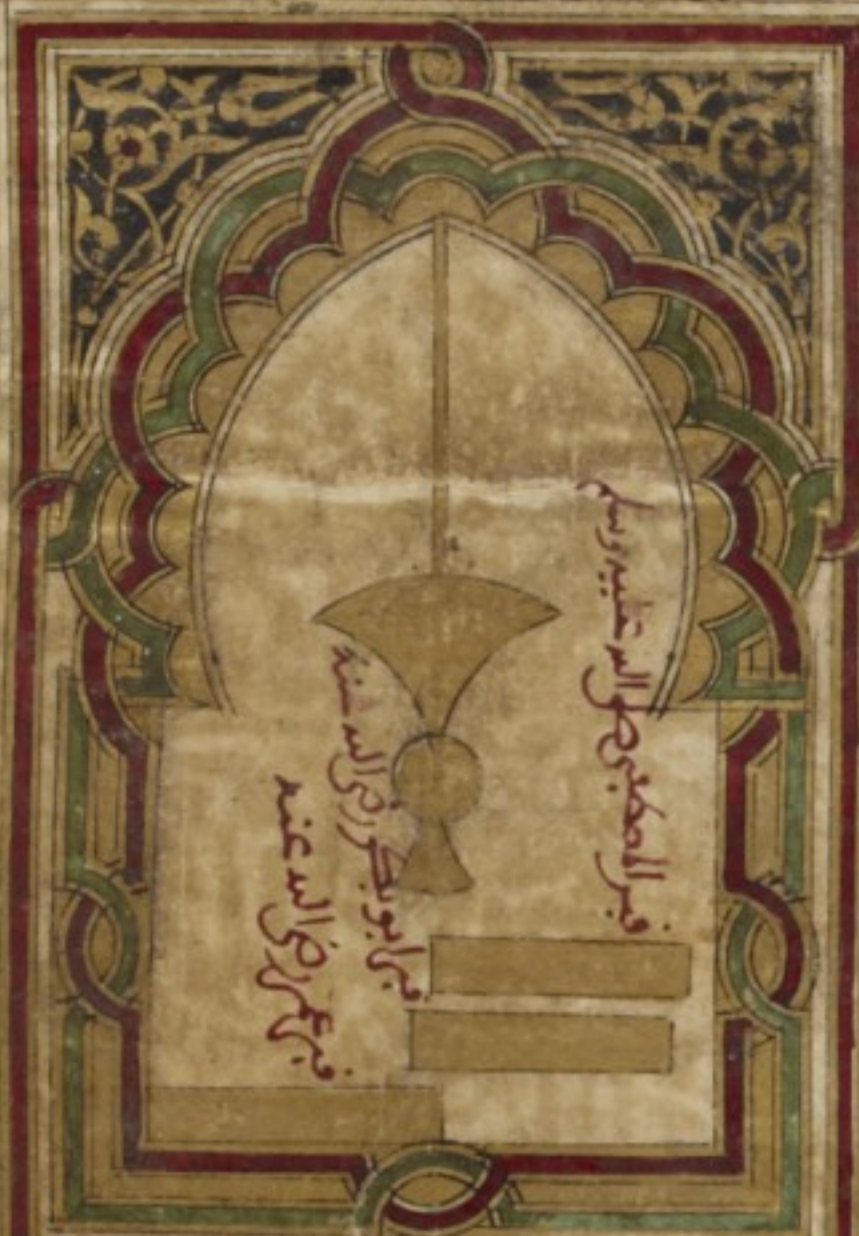 قبر المصطفى صلى الله عليه وسلم
قبر ابو بكر رضي الله عنه
قبر عمر رضي الله عنه